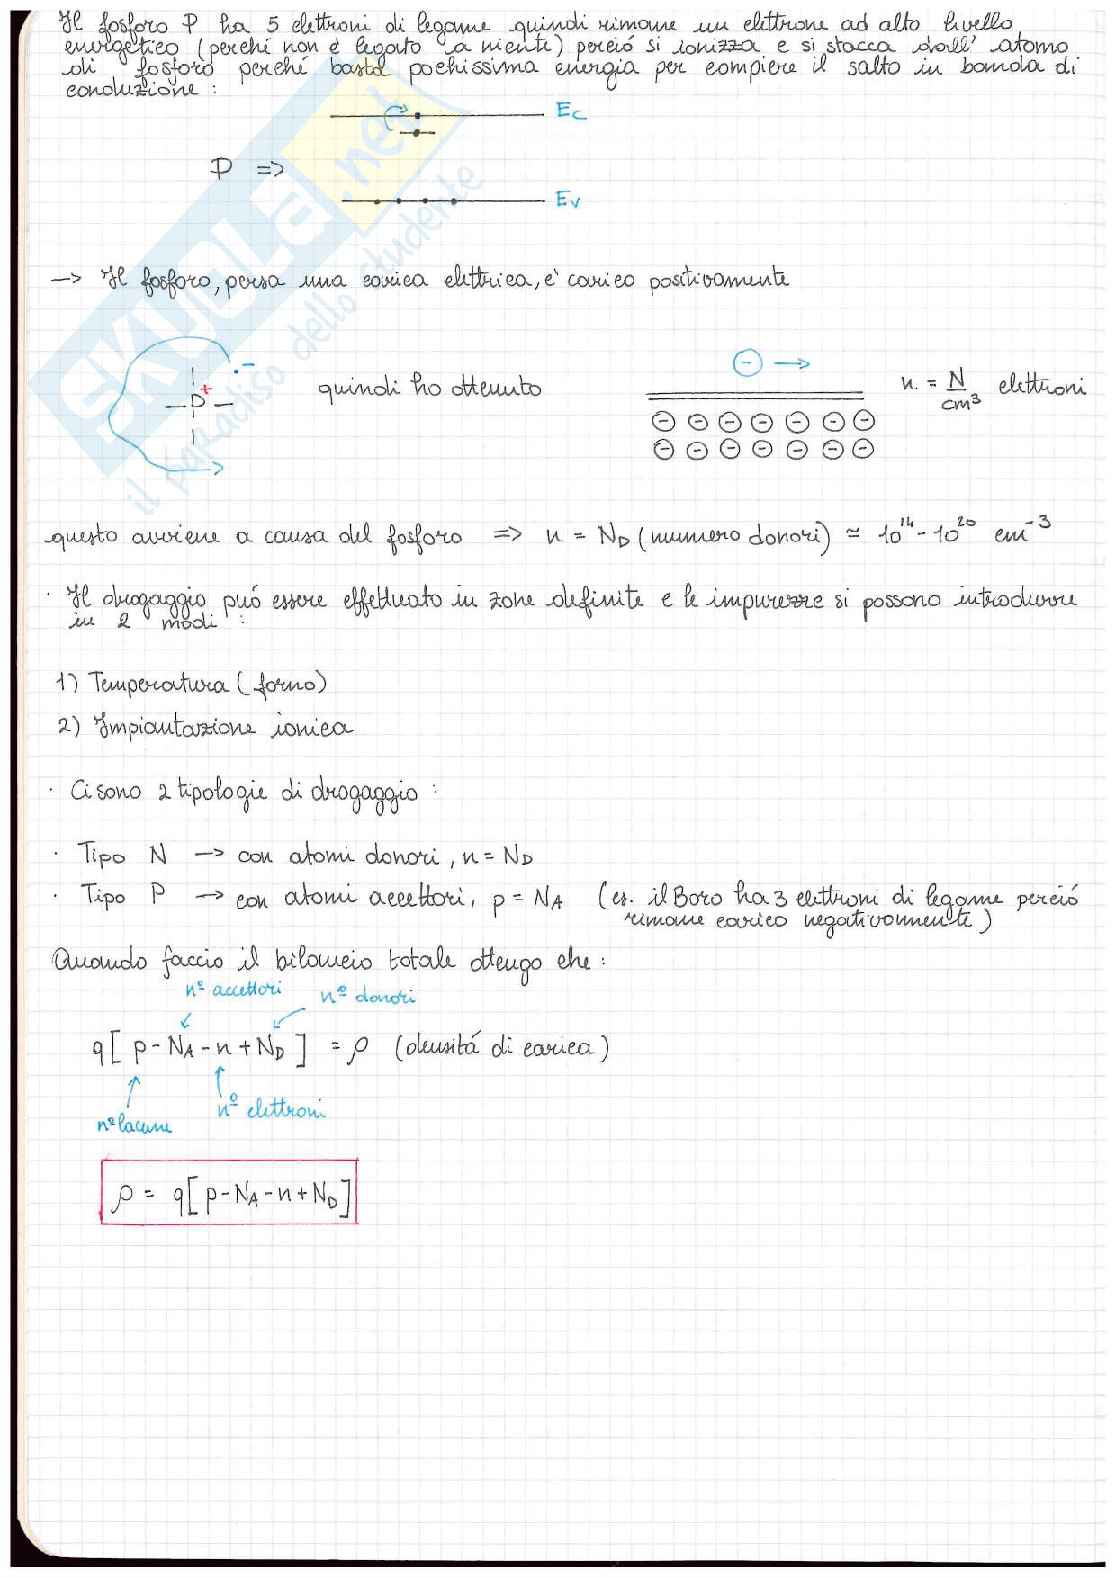 Il fosforo P ha 5 elettroni di legame quindi rimane un elettrone ad alto livello
energetico (perché non è legato a niente) perció si ionizza e si stacca dall' atomo
di fosforo perché basta pochissima energia per compiere il salto in banda di
conduzione :
Ec
P =>
Ev
-> Il fosforo, persa una carica elettrica, e' carico positivamente
-
P+
quindi ho ottenuto
- ->
n = N/cm³ elettroni
- - - - - - -
- - - - - - -
questo avviene a causa del fosforo => n = ND (numero donori) ≃ 10¹⁴ - 10²⁰ cm⁻³
· Il drogaggio può essere effettuato in zone definite e le impurezze si possono introdurre
in 2 modi :
1) Temperatura (forno)
2) Impiantazione ionica
· Ci sono 2 tipologie di drogaggio :
· Tipo N -> con atomi donori, n = ND
· Tipo P -> con atomi accettori, p = NA (es. il Boro ha 3 elettroni di legame perció
rimane carico negativamente)
Quando faccio il bilancio totale ottengo che :
nº accettori nº donori
q[p - NA - n + ND] = ρ (densitá di carica)
nº lacune nº elettroni
ρ = q[p - NA - n + ND]
SKUOLA.net
il paradiso dello studente